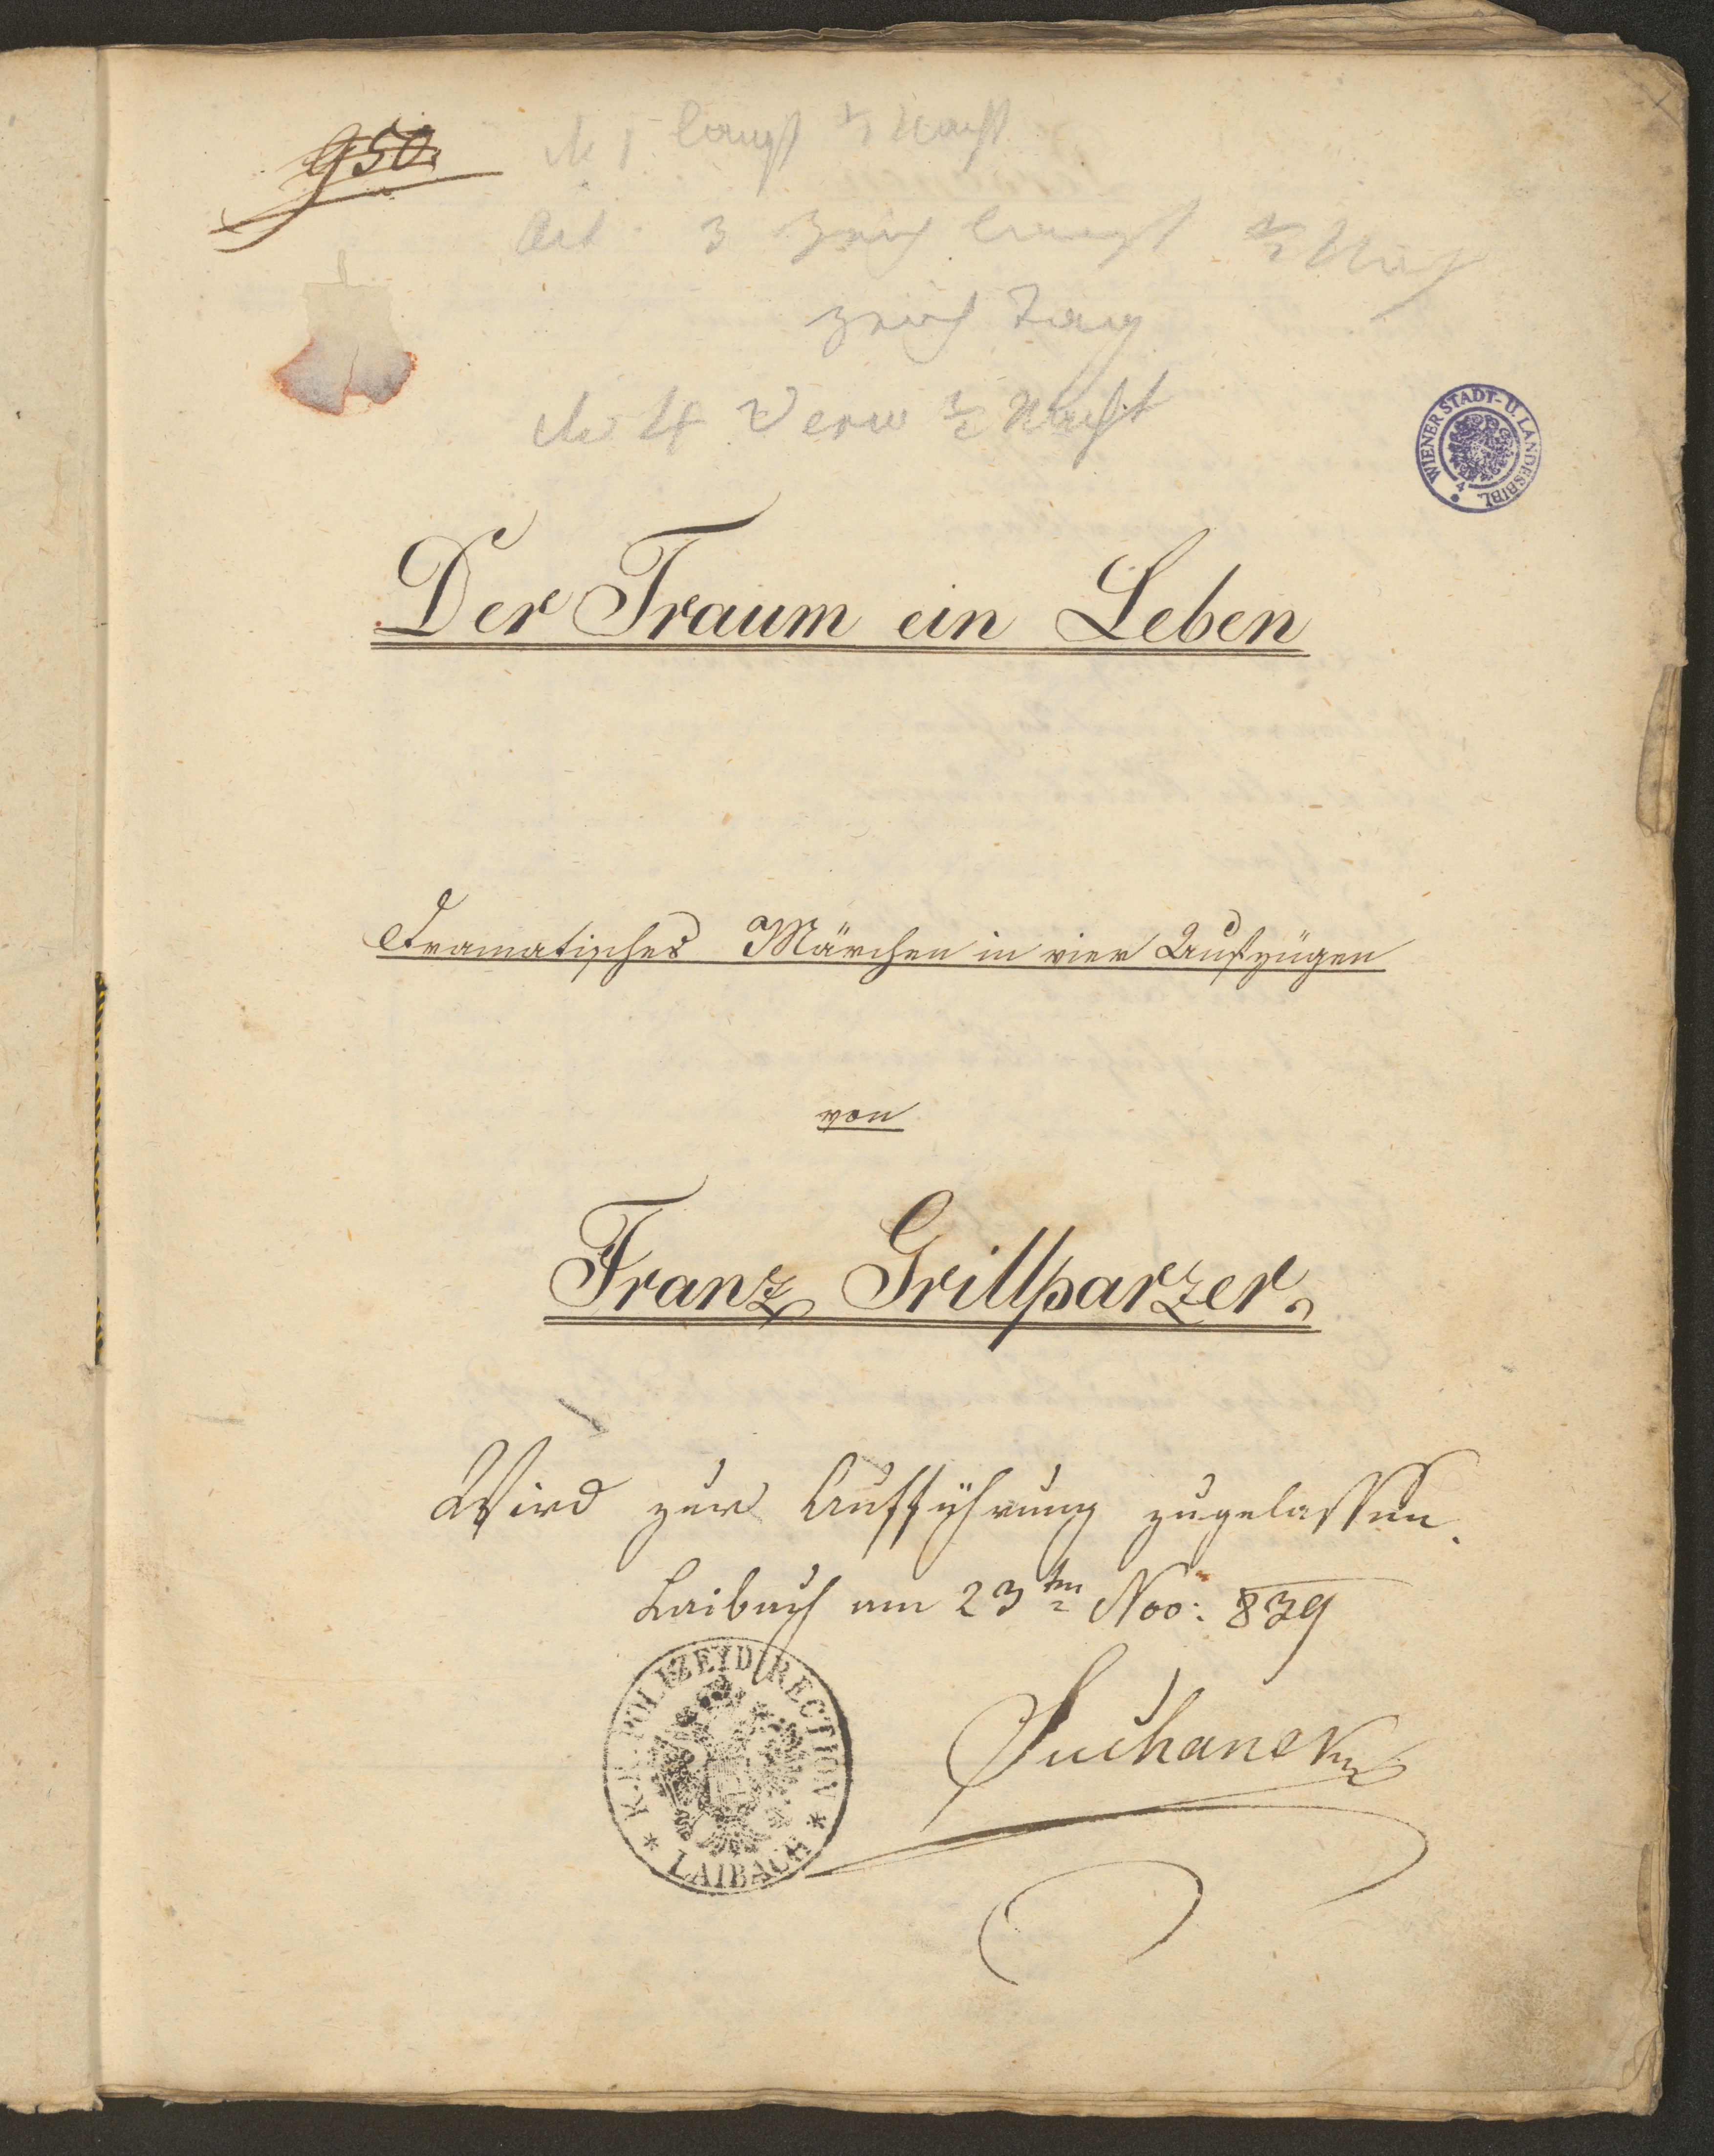 950.
Act 3
Tag
4 Verw ½ Nacht
WIENER STADT- U. LANDESBIBL.
4
Der Traum ein Leben
Dramatisches Märchen in vier Aufzügen
von
Franz Grillparzer.
Wird zur Aufführung zugelassen.
Laibach am 23ten Nov: 839
K.K. POLIZEYDIRECTION
LAIBACH
Suchanek